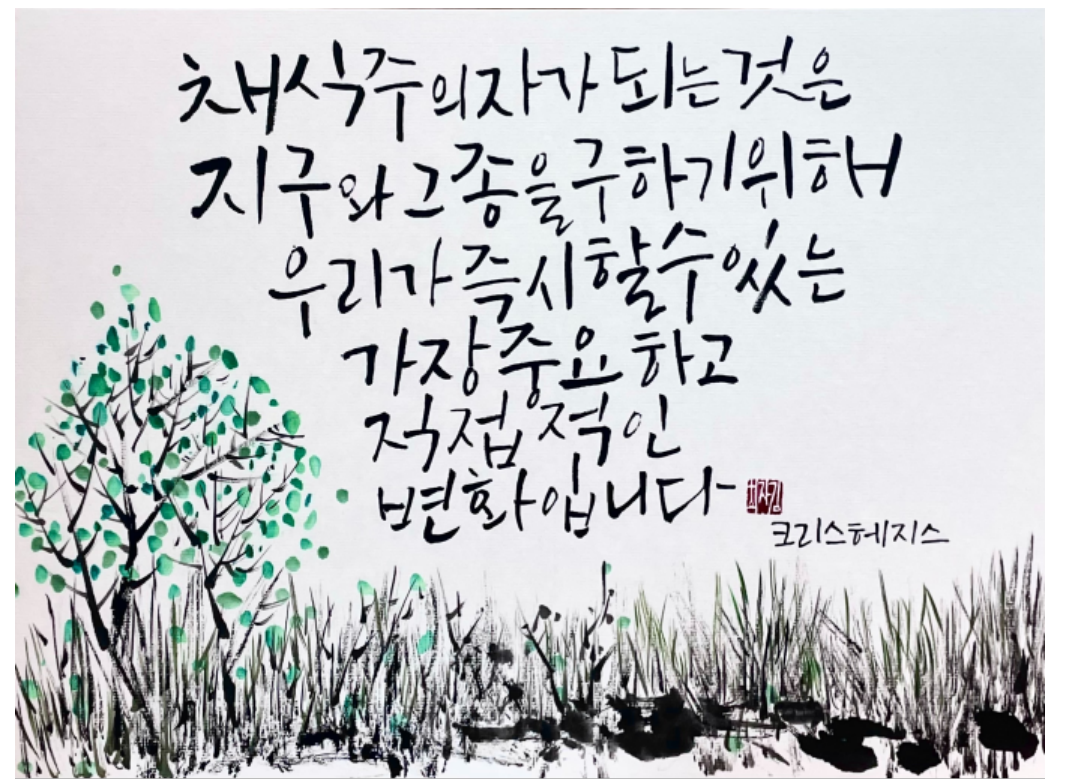 채식주의자가 되는 것은
지구와 그 종을 구하기 위해
우리가 즉시 할 수 있는
가장 중요하고
직접적인
변화입니다
크리스헤지스